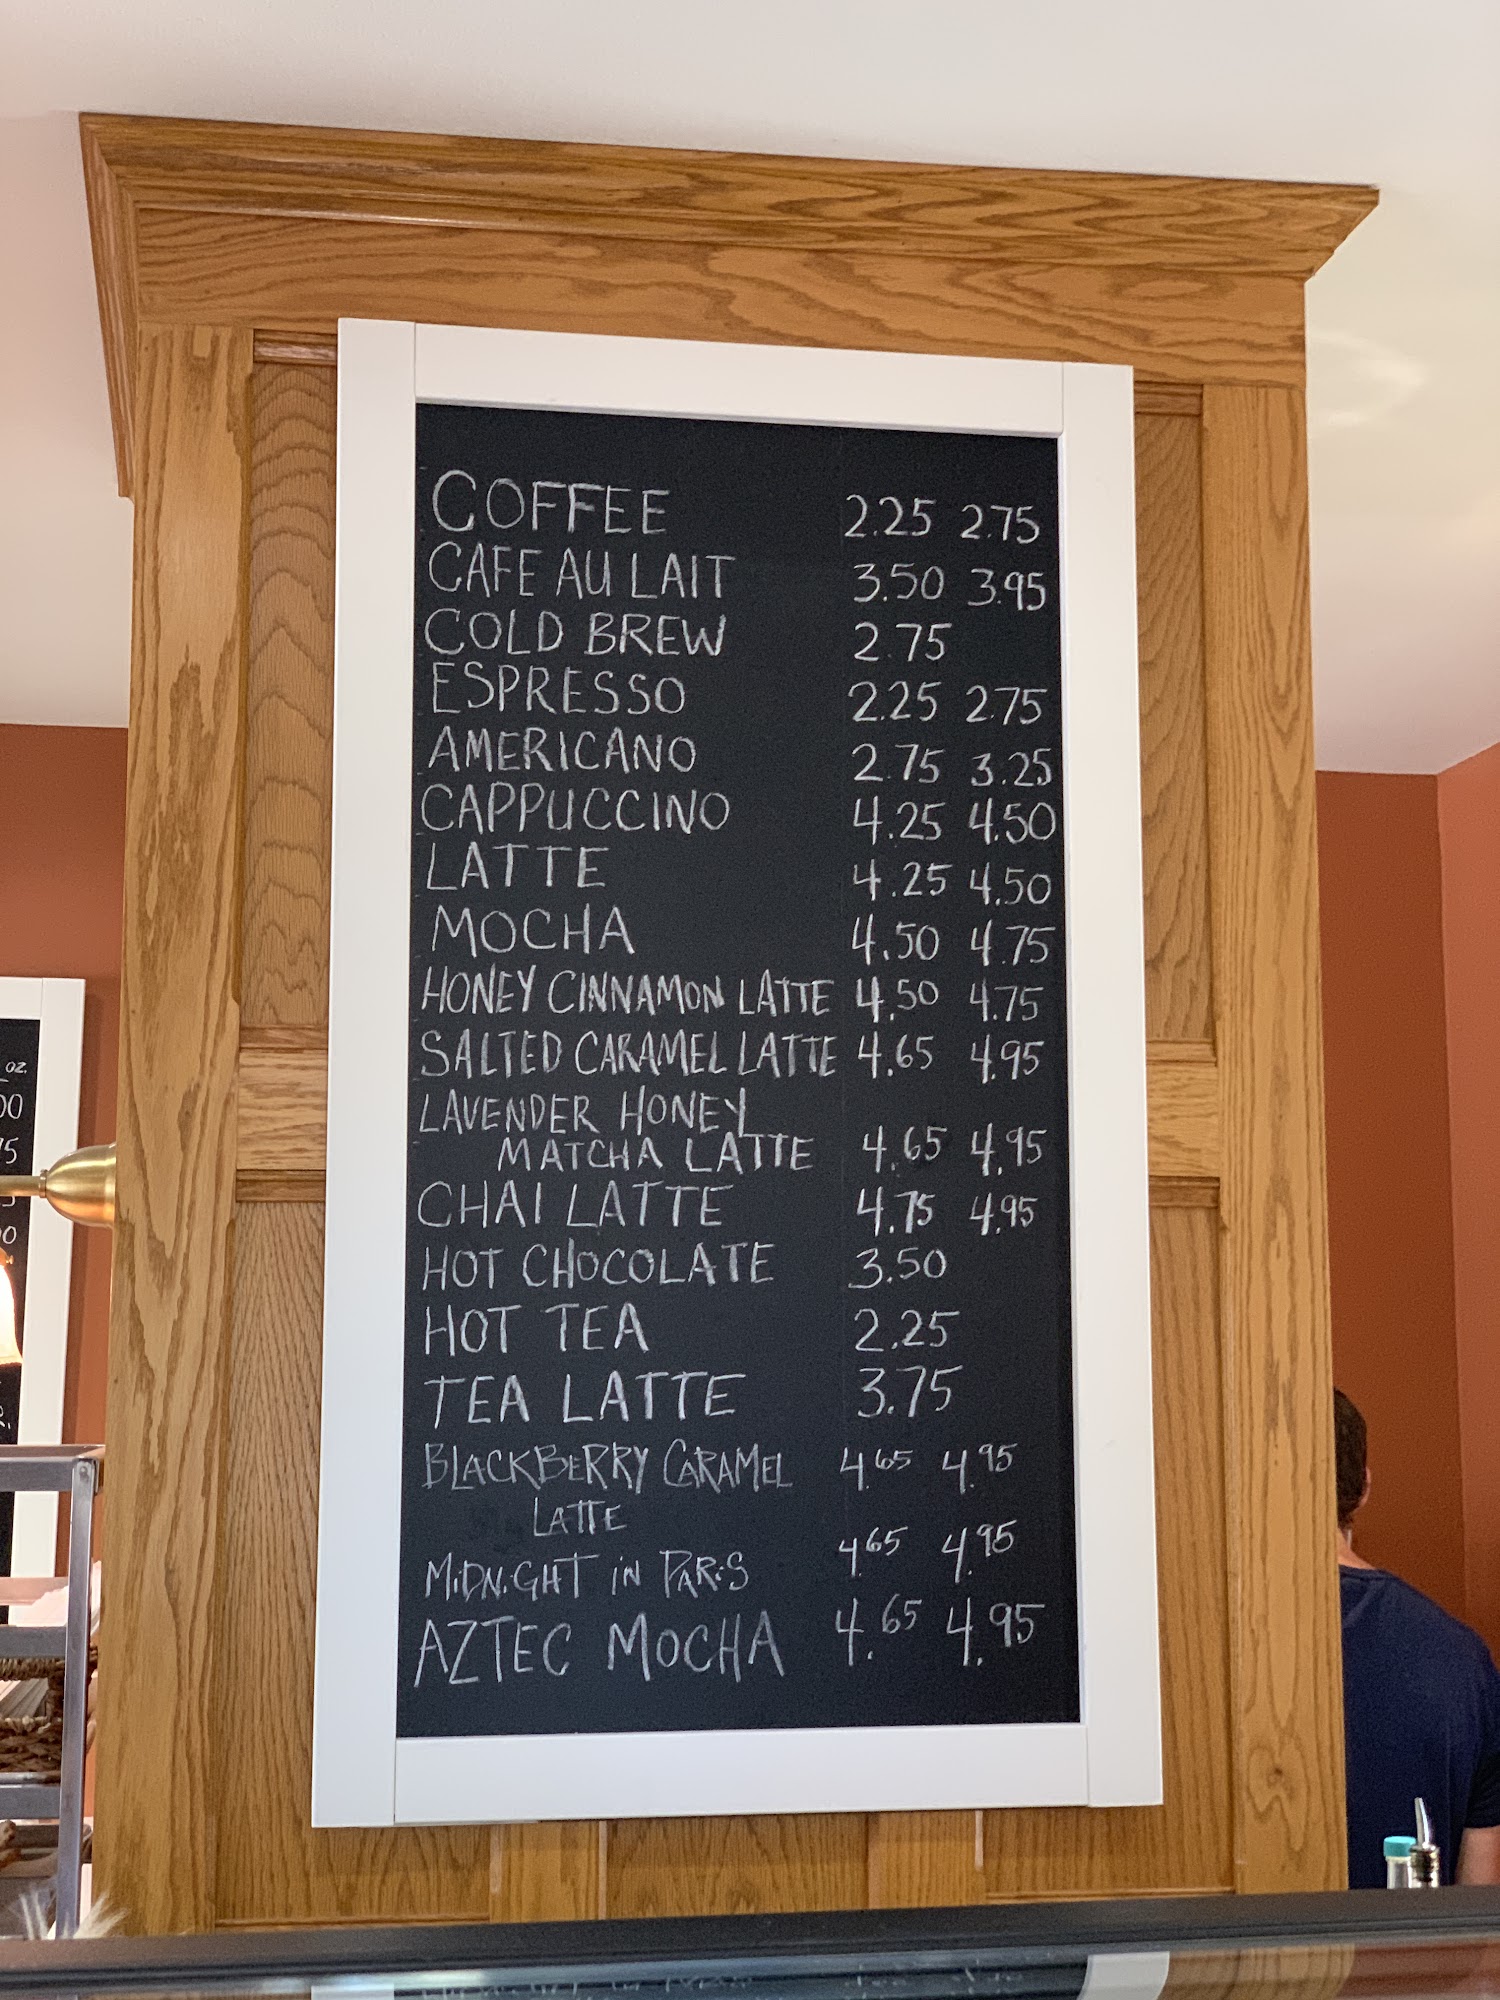 COFFEE 2.25 2.75
CAFE AU LAIT 3.50 3.95
COLD BREW 2.75
ESPRESSO 2.25 2.75
AMERICANO 2.75 3.25
CAPPUCCINO 4.25 4.50
LATTE 4.25 4.50
MOCHA 4.50 4.75
HONEY CINNAMON LATTE 4.50 4.75
SALTED CARAMEL LATTE 4.65 4.95
LAVENDER HONEY
MATCHA LATTE 4.65 4.95
CHAI LATTE 4.75 4.95
HOT CHOCOLATE 3.50
HOT TEA 2.25
TEA LATTE 3.75
BLACKBERRY CARAMEL 4.65 4.95
LATTE
MIDNIGHT IN PARIS 4.65 4.95
AZTEC MOCHA 4.65 4.95
OZ.